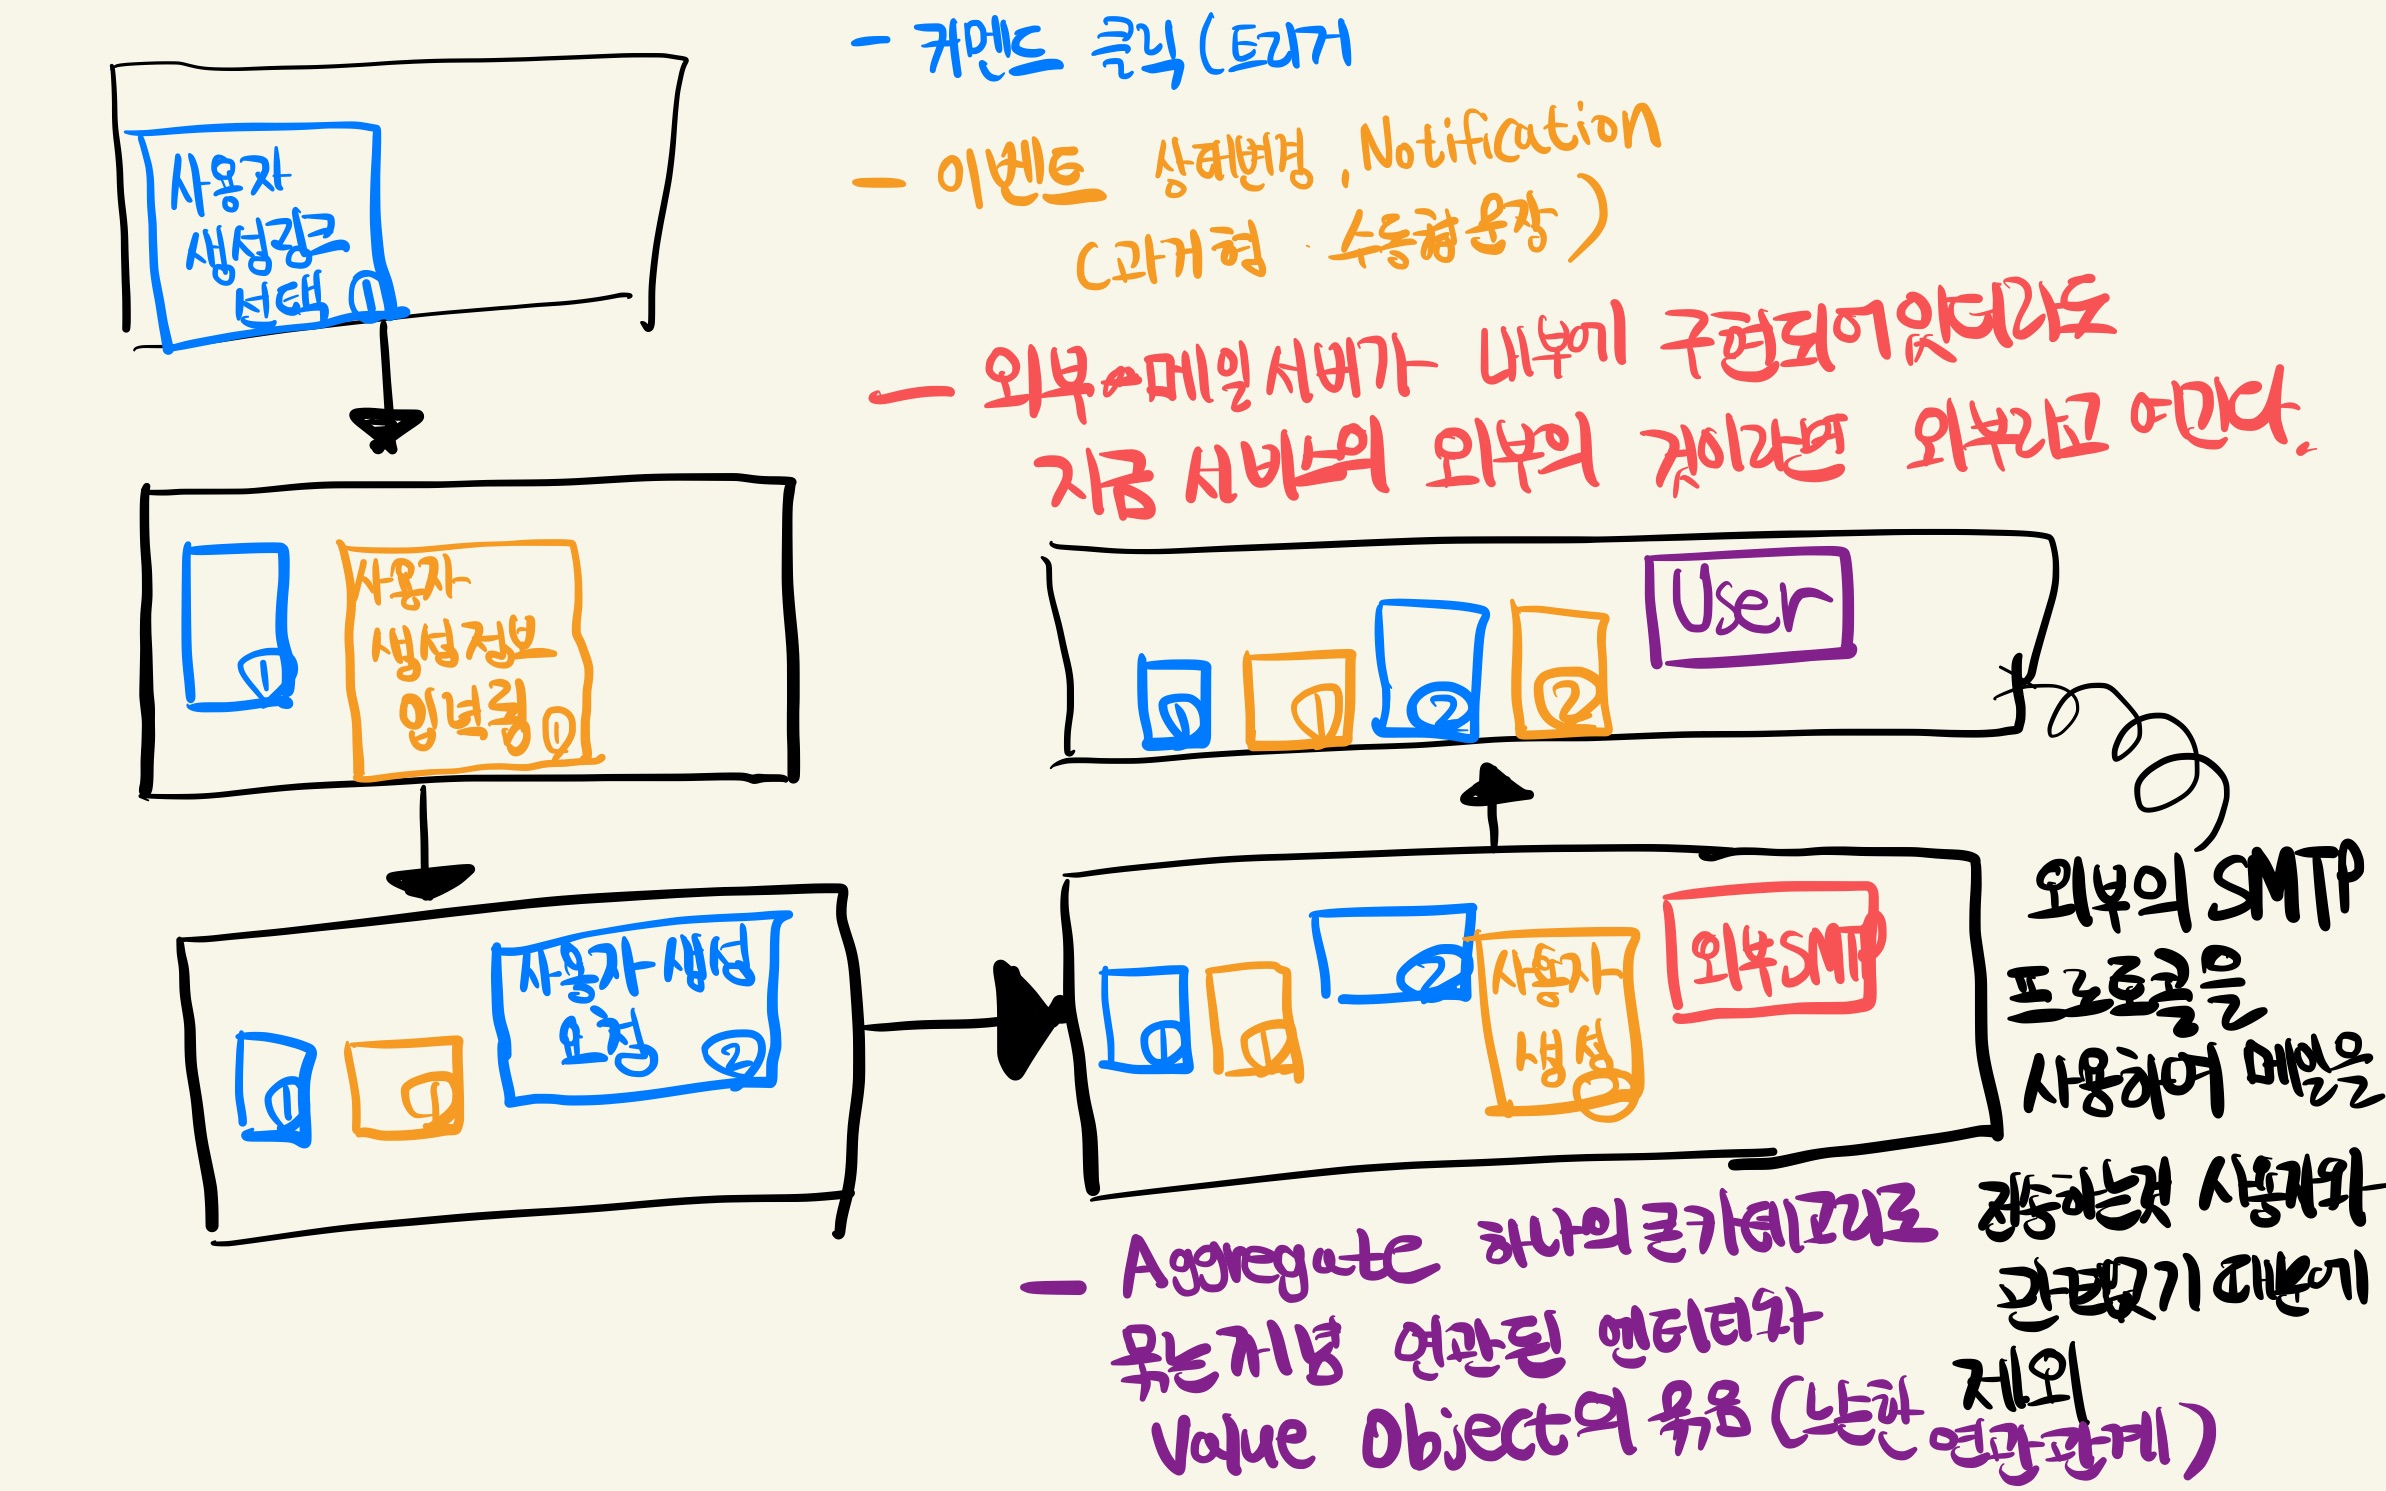 - 커맨드 클릭(트리거
- 이벤트 상태변경, Notification
(과거형 · 수동형문장)
- 외부 메일서버가 내부에 구현되어있더라도
지금 서비스의 외부의 것이라면 외부라고 여긴다.
사용자
생성링크
선택 ①
①
사용자
생성정보
입력됨 ①
①
①
사용자 생성
요청 ②
①
①
②
사용자
생성
②
외부 SMTP
①
①
②
②
User
외부의 SMTP
프로토콜을
사용하여 메일을
전송하는것 사용자와
관련없기 때문에
제외
- Aggregate 하나의 큰카테고리로
묶는게 가능 연관된 엔티티와
Value Object의 묶음 (
연관관계)